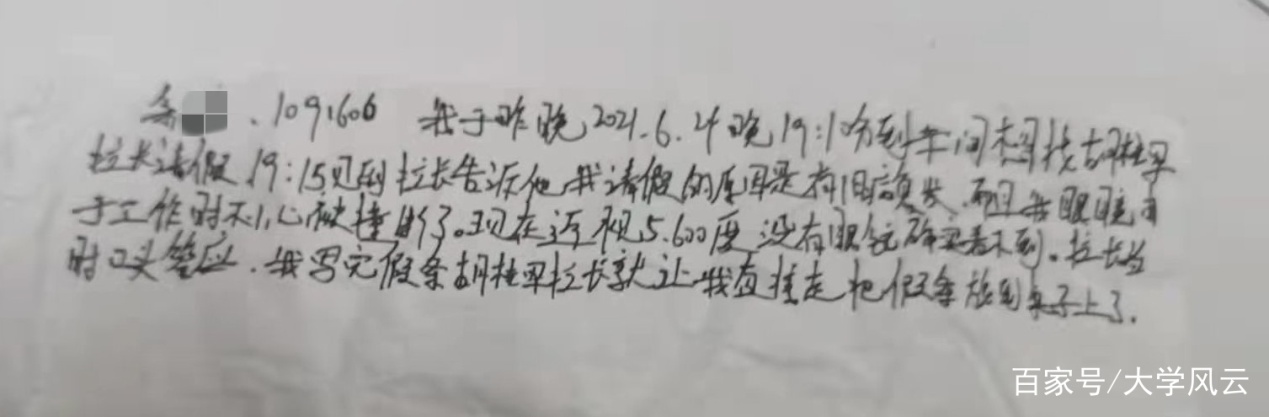 余 . 1091606 我于昨晚2021.6.24晚19:10分到车间想找胡桂罕
拉长请假 19:15见到拉长告诉他我请假的原因是有旧病复发.而且我眼睛由
于工作时不小心被撞断了。现在近视5.600度没有眼镜确实看不到。拉长当
时口头答应.我写完假条胡桂罕拉长就让我直接走把假条放到桌子上了.
百家号/大学风云